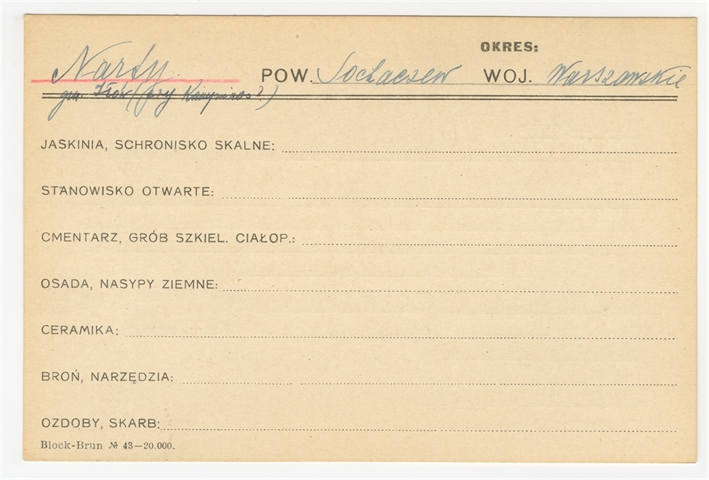 OKRES:
Narty POW. Sochaczew WOJ. Warszawskie
gm. Iłów (czy Kampinos?)
JASKINIA, SCHRONISKO SKALNE:
STANOWISKO OTWARTE:
CMENTARZ, GRÓB SZKIEL. CIAŁOP.:
OSADA, NASYPY ZIEMNE:
CERAMIKA:
BROŃ, NARZĘDZIA:
OZDOBY, SKARB:
Block-Brun № 43-20.000.